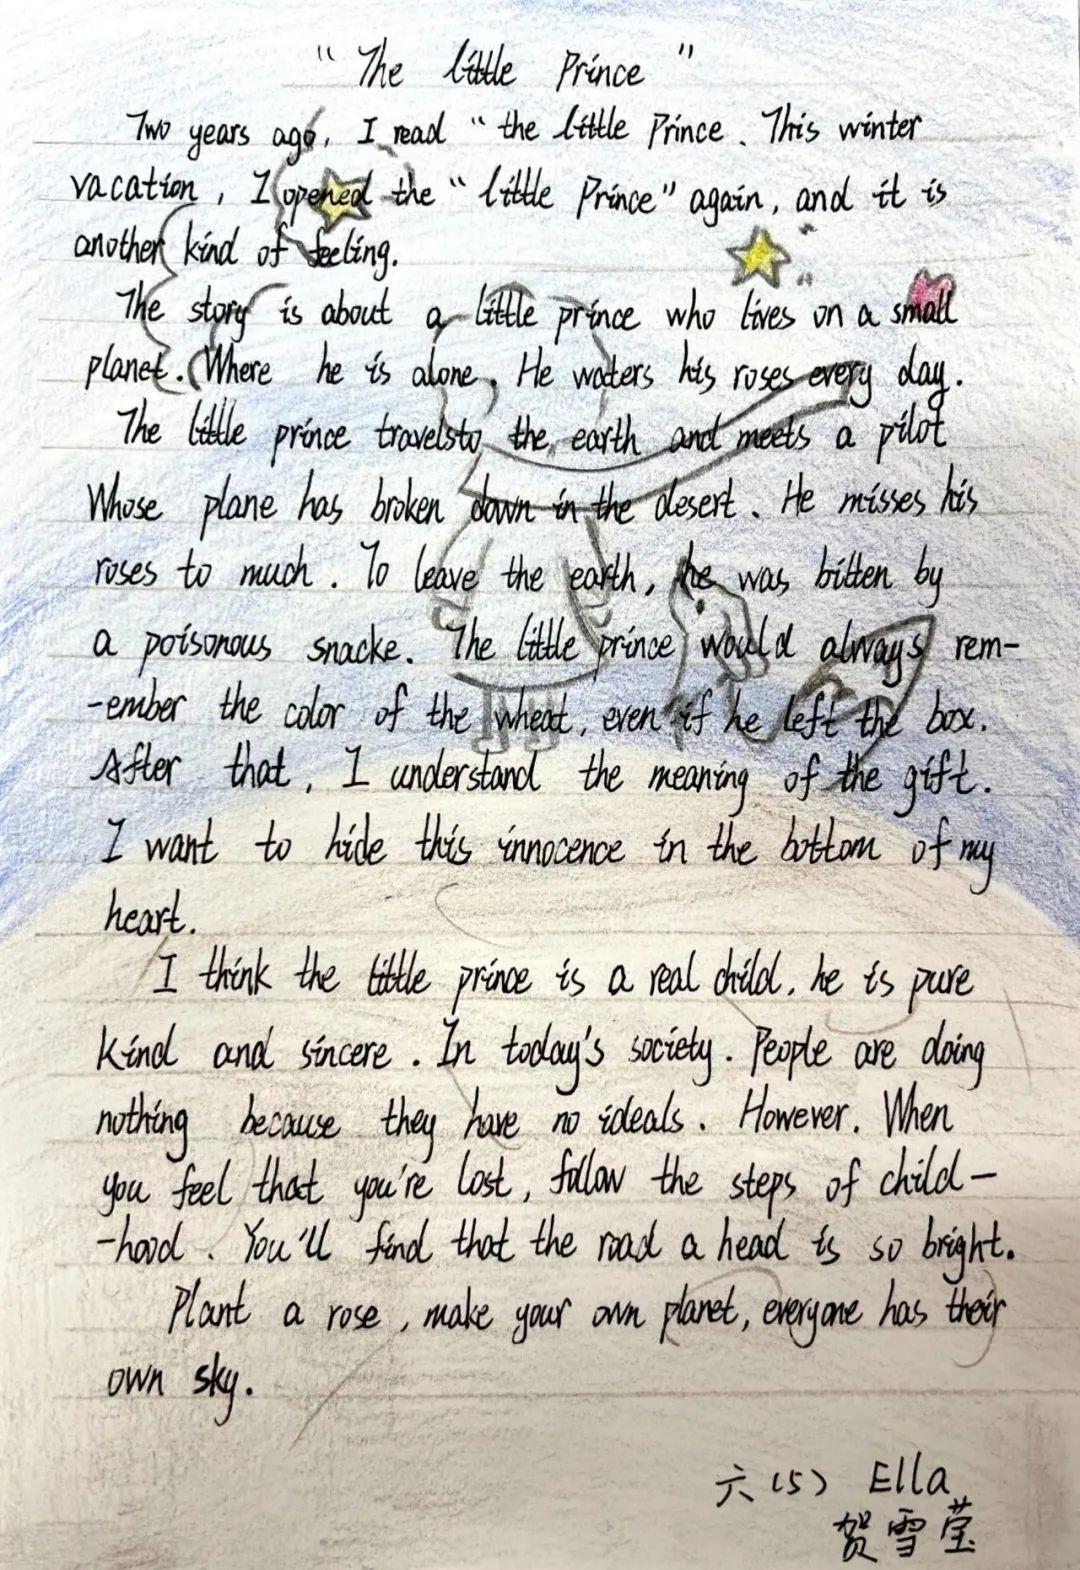 “ The little Prince ”
Two years ago, I read “ the little Prince. This winter
vacation, I opened the “ little Prince” again, and it is
another kind of feeling.
The story is about a little prince who lives on a small
planet. Where he is alone. He waters his roses every day.
The little prince travelsto the earth and meets a pilot
Whose plane has broken down in the desert. He misses his
roses to much. To leave the earth, he was bitten by
a poisonous snacke. The little prince would always rem-
-ember the color of the wheat, even if he left the box.
After that, I understand the meaning of the gift.
I want to hide this innocence in the bottom of my
heart.
I think the little prince is a real child, he is pure
kind and sincere. In today's society. People are doing
nothing because they have no ideals. However. When
you feel that you're lost, follow the steps of child-
-hood. You'll find that the road a head is so bright.
Plant a rose, make your own planet, everyone has their
own sky.
六(5) Ella
贺雪莹